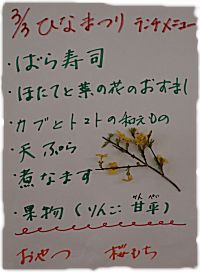 3/3 ひなまつり ランチメニュー
・ばら寿司
・ほたてと菜の花のおすまし
・カブとトマトの和えもの
・天ぷら
・煮なます
・果物（りんご 甘平）
かんぺい
おやつ 桜もち